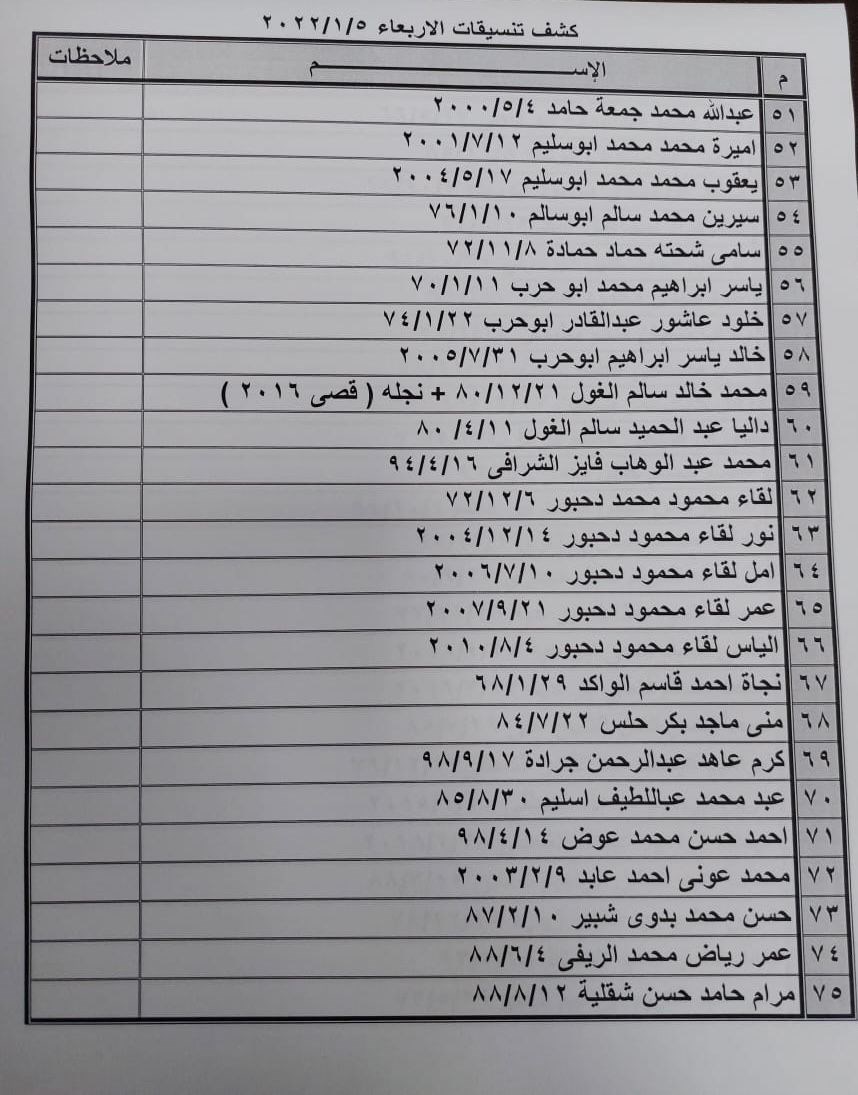 كشف تنسيقات الاربعاء ٢٠٢٢/١/٥
م الإســـــــم ملاحظات
٥١ عبدالله محمد جمعة حامد ٢٠٠٠/٥/٤
٥٢ اميرة محمد محمد ابوسليم ٢٠٠١/٧/١٢
٥٣ يعقوب محمد محمد ابوسليم ٢٠٠٤/٥/١٧
٥٤ سيرين محمد سالم ابوسالم ٧٦/١/١٠
٥٥ سامى شحته حماد حمادة ٧٢/١١/٨
٥٦ ياسر ابراهيم محمد ابو حرب ٧٠/١/١١
٥٧ خلود عاشور عبدالقادر ابوحرب ٧٤/١/٢٢
٥٨ خالد ياسر ابراهيم ابوحرب ٢٠٠٥/٧/٣١
٥٩ محمد خالد سالم الغول ٨٠/١٢/٢١ + نجله ( قصى ٢٠١٦ )
٦٠ داليا عبد الحميد سالم الغول ٨٠ /٤/١١
٦١ محمد عبد الوهاب فايز الشرافى ٩٤/٤/١٦
٦٢ لقاء محمود محمد دحبور ٧٢/١٢/٦
٦٣ نور لقاء محمود دحبور ٢٠٠٤/١٢/١٤
٦٤ امل لقاء محمود دحبور ٢٠٠٦/٧/١٠
٦٥ عمر لقاء محمود دحبور ٢٠٠٧/٩/٢١
٦٦ الياس لقاء محمود دحبور ٢٠١٠/٨/٤
٦٧ نجاة احمد قاسم الواكد ٦٨/١/٢٩
٦٨ منى ماجد بكر حلس ٨٤/٧/٢٢
٦٩ كرم عاهد عبدالرحمن جرادة ٩٨/٩/١٧
٧٠ عبد محمد عباللطيف اسليم ٨٥/٨/٣٠
٧١ احمد حسن محمد عوض ٩٨/٤/١٤
٧٢ محمد عونى احمد عابد ٢٠٠٣/٢/٩
٧٣ حسن محمد بدوى شبير ٨٧/٢/١٠
٧٤ عمر رياض محمد الريفى ٨٨/٦/٤
٧٥ مرام حامد حسن شقلية ٨٨/٨/١٢